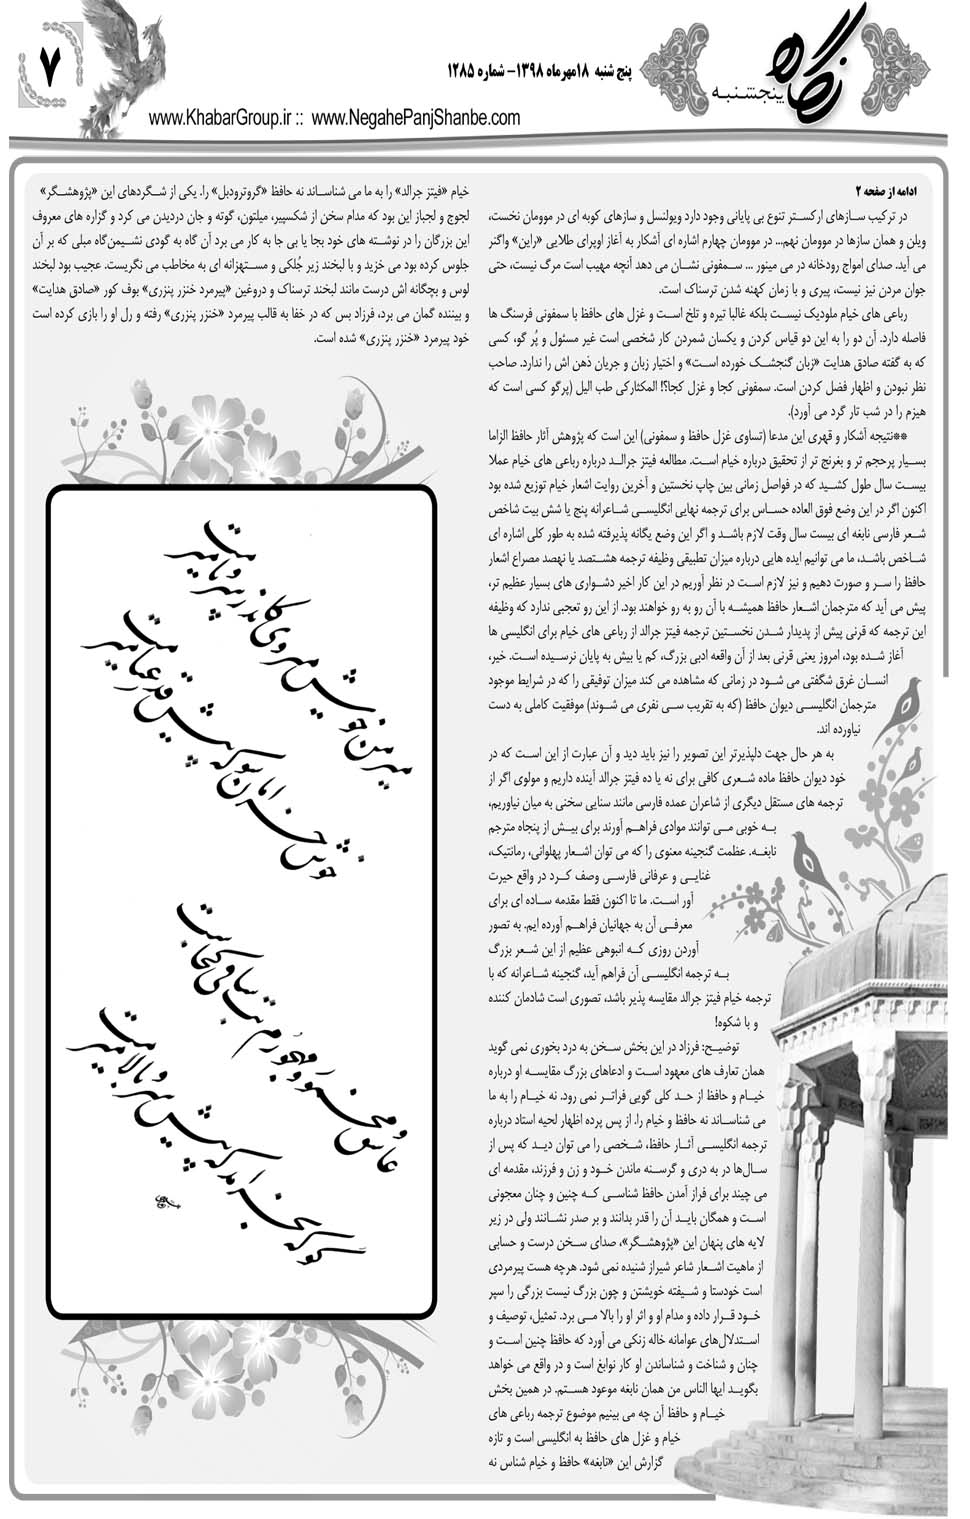 نگاه
پنجشنبه
پنج شنبه ۱۸مهرماه ۱۳۹۸- شماره ۱۲۸۵
۷
www.KhabarGroup.ir :: www.NegahePanjShanbe.com
ادامه از صفحه ۲
در ترکیب سازهای ارکستر تنوع بی پایانی وجود دارد ویولنسل و سازهای کوبه ای در موومان نخست،
ویلن و همان سازها در موومان نهم... در موومان چهارم اشاره ای آشکار به آغاز اوپرای طلایی «راین» واگنر
می آید. صدای امواج رودخانه در می مینور ... سمفونی نشان می دهد آنچه مهیب است مرگ نیست، حتی
جوان مردن نیز نیست، پیری و با زمان کهنه شدن ترسناک است.
رباعی های خیام ملودیک نیست بلکه غالبا تیره و تلخ است و غزل های حافظ با سمفونی فرسنگ ها
فاصله دارد. آن دو را به این دو قیاس کردن و یکسان شمردن کار شخصی است غیر مسئول و پُر گو، کسی
که به گفته صادق هدایت «زبان گنجشک خورده است» و اختیار زبان و جریان ذهن اش را ندارد. صاحب
نظر نبودن و اظهار فضل کردن است. سمفونی کجا و غزل کجا؟! المکثارکی طب الیل (پرگو کسی است که
هیزم را در شب تار گرد می آورد).
**نتیجه آشکار و قهری این مدعا (تساوی غزل حافظ و سمفونی) این است که پژوهش آثار حافظ الزاما
بسیار پرحجم تر و بغرنج تر از تحقیق درباره خیام است. مطالعه فیتز جرالد درباره رباعی های خیام عملا
بیست سال طول کشید که در فواصل زمانی بین چاپ نخستین و آخرین روایت اشعار خیام توزیع شده بود
اکنون اگر در این وضع فوق العاده حساس برای ترجمه نهایی انگلیسی شاعرانه پنج یا شش بیت شاخص
شعر فارسی نابغه ای بیست سال وقت لازم باشد و اگر این وضع یگانه پذیرفته شده به طور کلی اشاره ای
شاخص باشد، ما می توانیم ایده هایی درباره میزان تطبیقی وظیفه ترجمه هشتصد یا نهصد مصراع اشعار
حافظ را سر و صورت دهیم و نیز لازم است در نظر آوریم در این کار اخیر دشواری های بسیار عظیم تر،
پیش می آید که مترجمان اشعار حافظ همیشه با آن رو به رو خواهند بود. از این رو تعجبی ندارد که وظیفه
این ترجمه که قرنی پیش از پدیدار شدن نخستین ترجمه فیتز جرالد از رباعی های خیام برای انگلیسی ها
آغاز شده بود، امروز یعنی قرنی بعد از آن واقعه ادبی بزرگ، کم یا بیش به پایان نرسیده است. خیر،
انسان غرق شگفتی می شود در زمانی که مشاهده می کند میزان توفیقی را که در شرایط موجود
مترجمان انگلیسی دیوان حافظ (که به تقریب سی نفری می شوند) موفقیت کاملی به دست
نیاورده اند.
به هر حال جهت دلپذیرتر این تصویر را نیز باید دید و آن عبارت از این است که در
خود دیوان حافظ ماده شعری کافی برای نه یا ده فیتز جرالد آینده داریم و مولوی اگر از
ترجمه های مستقل دیگری از شاعران عمده فارسی مانند سنایی سخنی به میان نیاوریم،
به خوبی می توانند موادی فراهم آورند برای بیش از پنجاه مترجم
نابغه. عظمت گنجینه معنوی را که می توان اشعار پهلوانی، رمانتیک،
غنایی و عرفانی فارسی وصف کرد در واقع حیرت
آور است. ما تا اکنون فقط مقدمه ساده ای برای
معرفی آن به جهانیان فراهم آورده ایم. به تصور
آوردن روزی که انبوهی عظیم از این شعر بزرگ
به ترجمه انگلیسی آن فراهم آید، گنجینه شاعرانه که با
ترجمه خیام فیتز جرالد مقایسه پذیر باشد، تصوری است شادمان کننده
و با شکوه!
توضیح: فرزاد در این بخش سخن به درد بخوری نمی گوید
همان تعارف های معهود است و ادعاهای بزرگ مقایسه او درباره
خیام و حافظ از حد کلی گویی فراتر نمی رود. نه خیام را به ما
می شناساند نه حافظ و خیام را. از پس پرده اظهار لحیه استاد درباره
ترجمه انگلیسی آثار حافظ، شخصی را می توان دید که پس از
سال‌ها در به دری و گرسنه ماندن خود و زن و فرزند، مقدمه ای
می چیند برای فراز آمدن حافظ شناسی که چنین و چنان معجونی
است و همگان باید آن را قدر بدانند و بر صدر نشانند ولی در زیر
لایه های پنهان این «پژوهشگر»، صدای سخن درست و حسابی
از ماهیت اشعار شاعر شیراز شنیده نمی شود. هرچه هست پیرمردی
است خودستا و شیفته خویشتن و چون بزرگ نیست بزرگی را سپر
خود قرار داده و مدام او و اثر او را بالا می برد. تمثیل، توصیف و
استدلال‌های عوامانه خاله زنکی می آورد که حافظ چنین است و
چنان و شناخت و شناساندن او کار نوابغ است و در واقع می خواهد
بگوید ایها الناس من همان نابغه موعود هستم. در همین بخش
خیام و حافظ آن چه می بینیم موضوع ترجمه رباعی های
خیام و غزل های حافظ به انگلیسی است و تازه
گزارش این «نابغه» حافظ و خیام شناس نه
خیام «فیتز جرالد» را به ما می شناساند نه حافظ «گروترودبل» را. یکی از شگردهای این «پژوهشگر»
لجوج و لجباز این بود که مدام سخن از شکسپیر، میلتون، گوته و جان دردیدن می کرد و گزاره های معروف
این بزرگان را در نوشته های خود بجا یا بی جا به کار می برد آن گاه به گودی نشیمن‌گاه مبلی که بر آن
جلوس کرده بود می خزید و با لبخند زیر جُلکی و مستهزانه ای به مخاطب می نگریست. عجیب بود لبخند
لوس و بچگانه اش درست مانند لبخند ترسناک و دروغین «پیرمرد خنزر پنزری» بوف کور «صادق هدایت»
و بیننده گمان می برد، فرزاد بس که در خفا به قالب پیرمرد «خنزر پنزری» رفته و رل او را بازی کرده است
خود پیرمرد «خنزر پنزری» شده است.
میر من خوش می‌روی کاندر سر و پا میرمت
خوش خرامان شو که پیش قد رعنا میرمت
عاشق و مخمور و مهجورم بت ساقی کجاست
گو که بخرامد که پیش سروبالا میرمت